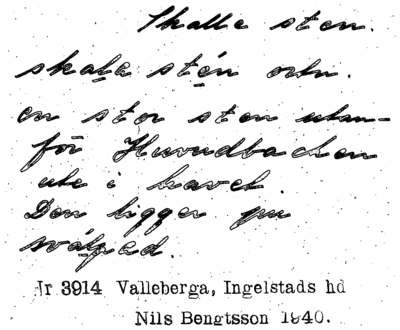 Skalle sten.
skala stén ortn.
en stor sten utan-
för Huvudbacken
ute i havet.
Den ligger nu
Nr 3914 Valleberga, Ingelstads hd
Nils Bengtsson 1940.